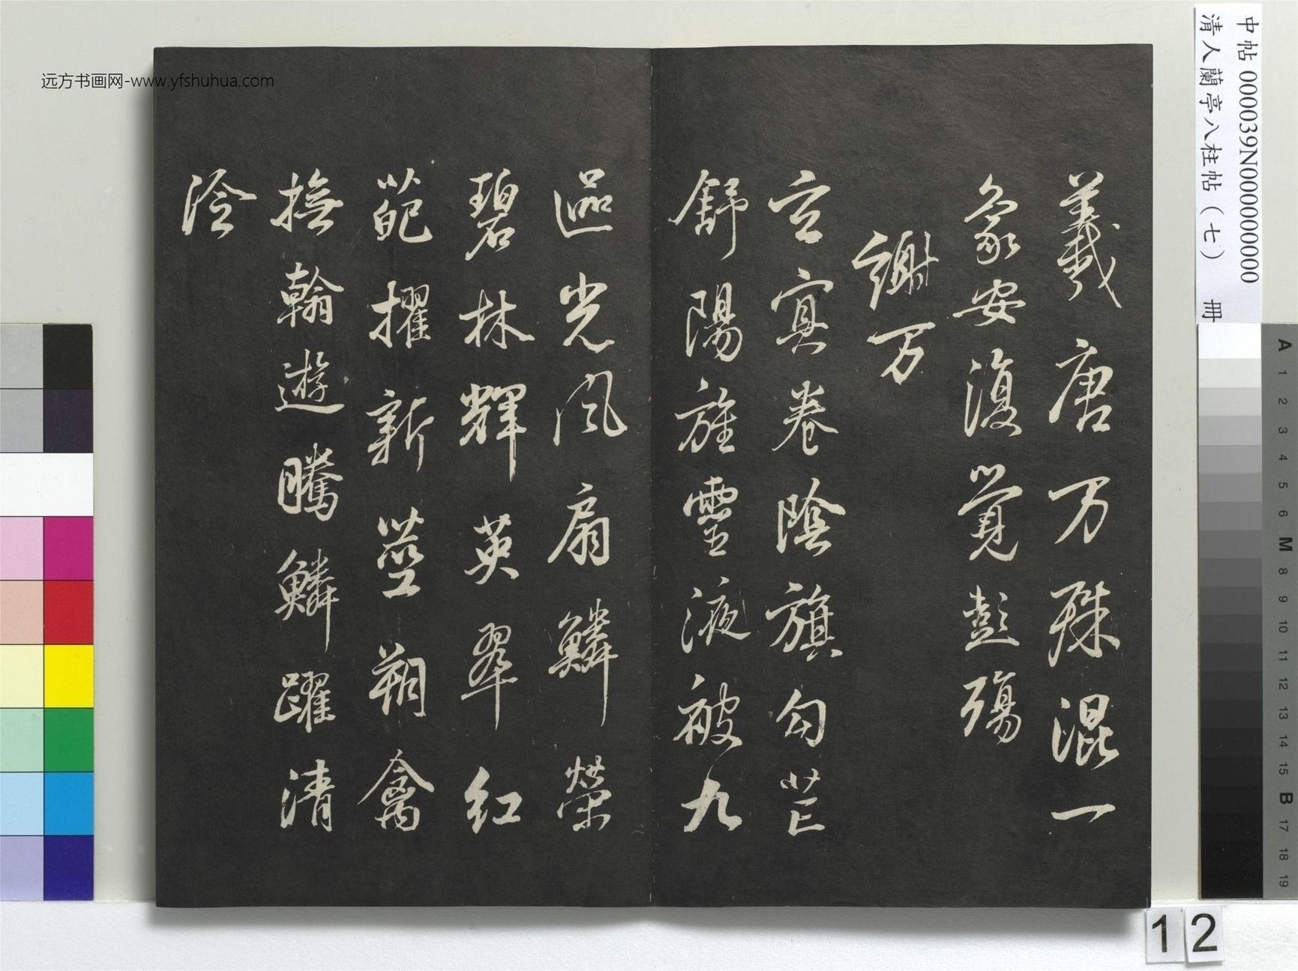 中帖 000039N000000000
清人蘭亭八柱帖（七） 冊
远方书画网-www.yfshuhua.com
羲唐万殊混一
象安復覺彭殤
謝万
玄寞卷陰旗勾芒
舒陽旌靈液被九
區光風扇鱗榮
碧林輝英翠紅
葩擢新莖翔禽
撫翰遊騰鱗躍清
泠
A
1
2
3
4
5
6
M
8
9
10
11
12
13
14
15
B
17
18
19
12